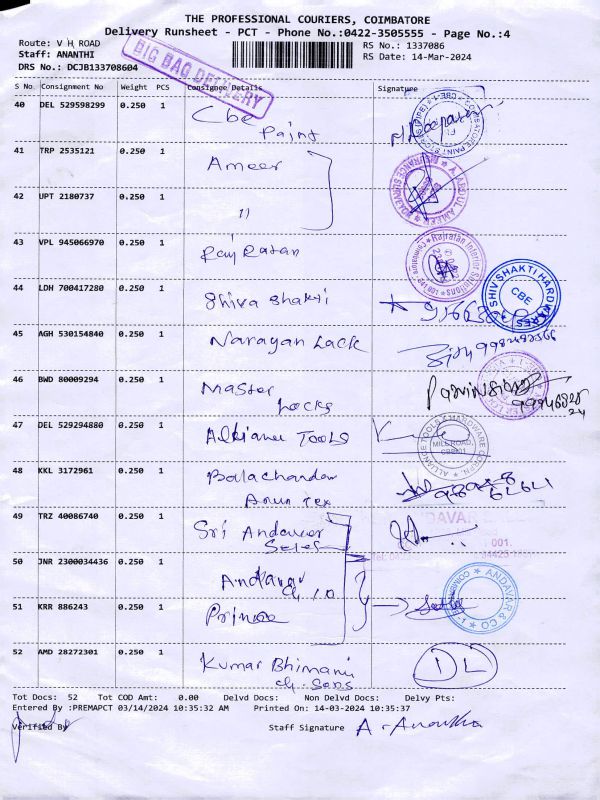 THE PROFESSIONAL COURIERS, COIMBATORE
Delivery Runsheet - PCT - Phone No.:0422-3505555 - Page No.:4
Route: V H ROAD
RS No.: 1337086
Staff: ANANTHI
RS Date: 14-Mar-2024
DRS No.: DCJB133708604
BIG BAG DELIVERY
S No. Consignment No Weight PCS Consignee Details Signature
40 DEL 529598299 0.250 1 Cbe
Paint
41 TRP 2535121 0.250 1 Ameer
42 UPT 2180737 0.250 1 11
43 VPL 945066970 0.250 1 Raj Ratan
44 LDH 700417280 0.250 1 Shiva Shakti
SHIV SHAKTI HARDWARES
CBE
45 AGH 530154840 0.250 1 Narayan Lack
46 BWD 80009294 0.250 1 Master
Locks
47 DEL 529294880 0.250 1 Alliance Tools
ALLIANCE TOOLS & HARDWARE CORPN.
MILL ROAD,
48 KKL 3172961 0.250 1 Balachandar
Arun Tex
49 TRZ 40086740 0.250 1 Sri Andavar
Sales
ANDAVAR
001.
50 JNR 2300034436 0.250 1 Andavar
51 KRR 886243 0.250 1 Prince
ANDAVAR & CO
52 AMD 28272301 0.250 1 Kumar Bhimani
ch. Sons
DL
Tot Docs: 52 Tot COD Amt: 0.00 Delvd Docs: Non Delvd Docs: Delvy Pts:
Entered By :PREMAPCT 03/14/2024 10:35:32 AM Printed On: 14-03-2024 10:35:37
Verified By Staff Signature A. Anantha